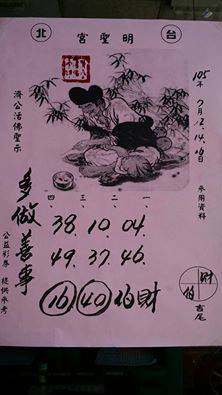 台 明聖宮 北
105年7月12.14.16日
參用資料
濟公活佛聖示
四、 三、 二、 一、
38. 10. 04.
49. 37. 46.
16 40 伯財
多做善事
公益彩券 提供參考
財
伯
吉尾